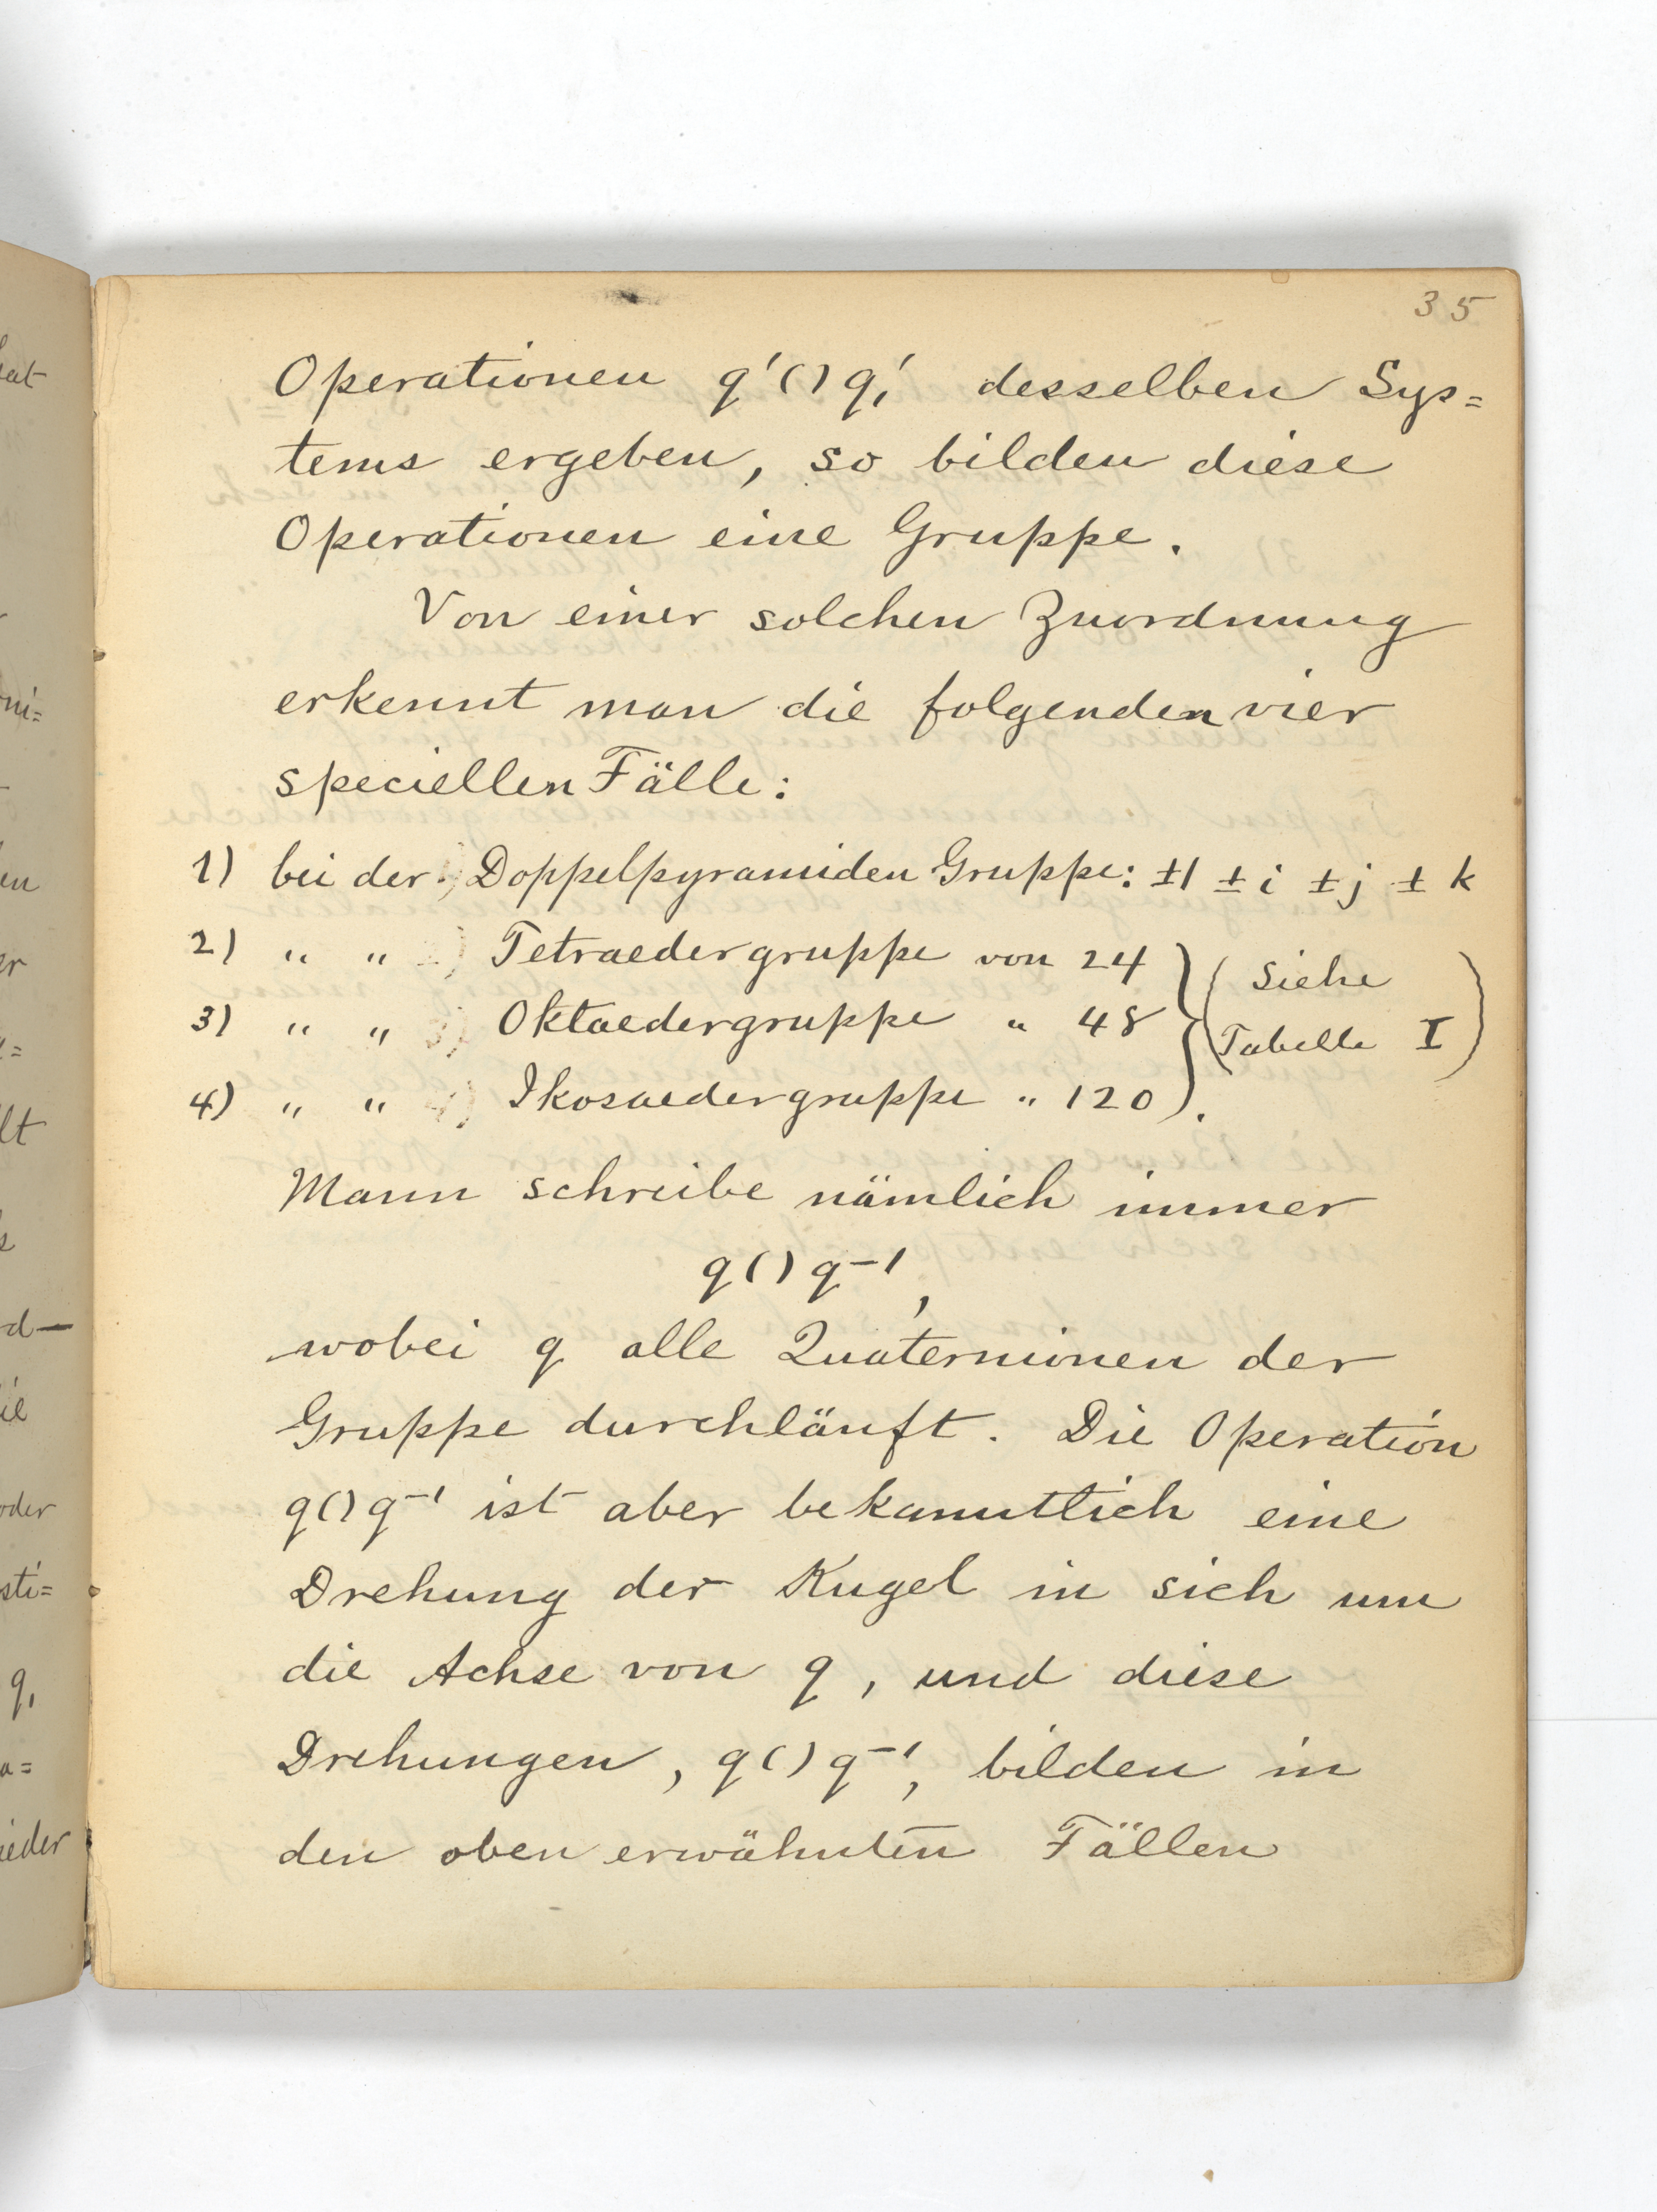 35
Operationen q′()q,′ desselben Sys=
tems ergeben, so bilden diese
Operationen eine Gruppe.
Von einer solchen Zuordnung
erkennt man die folgenden vier
speciellen Fälle:
1) bei der Doppelpyramiden Gruppe: ±1 ± i ± j ± k
2) " " Tetraedergruppe von 24 } ( Siehe
3) " " Oktaedergruppe " 48 } Tabelle I )
4) " " Ikosaedergruppe " 120 } .
Mann schreibe nämlich immer
q()q⁻¹,
wobei q alle Quaternionen der
Gruppe durchläuft. Die Operation
q()q⁻¹ ist aber bekanntlich eine
Drehung der Kugel in sich um
die Achse von q, und diese
Drehungen, q()q⁻¹, bilden in
den oben erwähnten Fällen